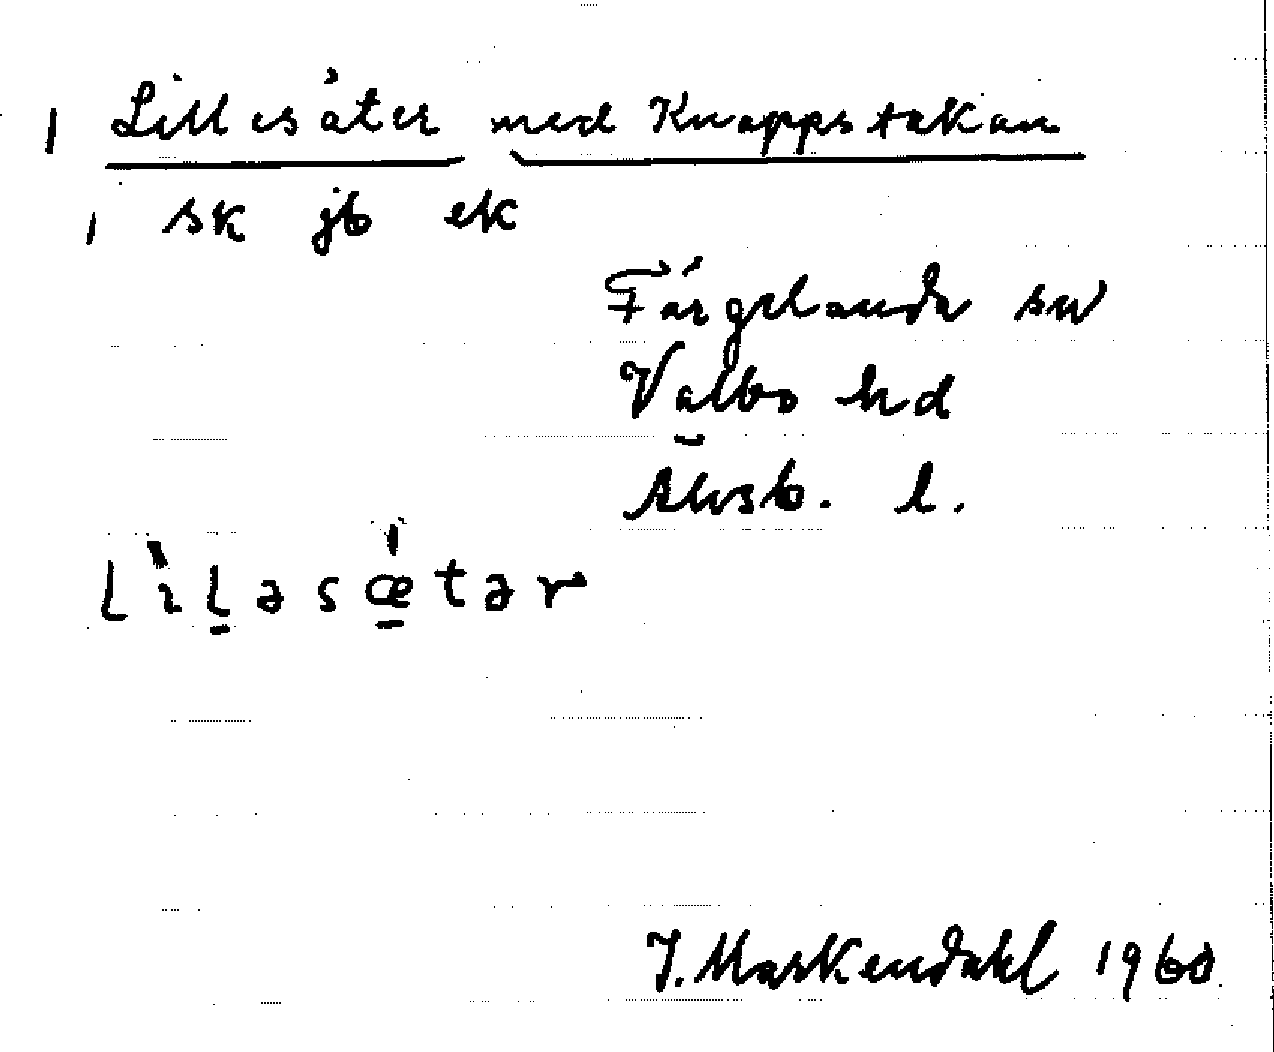 | Lillesäter med Knappstakan
| sk jb ek
Färgelanda sn
Valbo hd
Älvsb. l.
Lìl̠əsǽ̠tər
J. Markendahl 1960